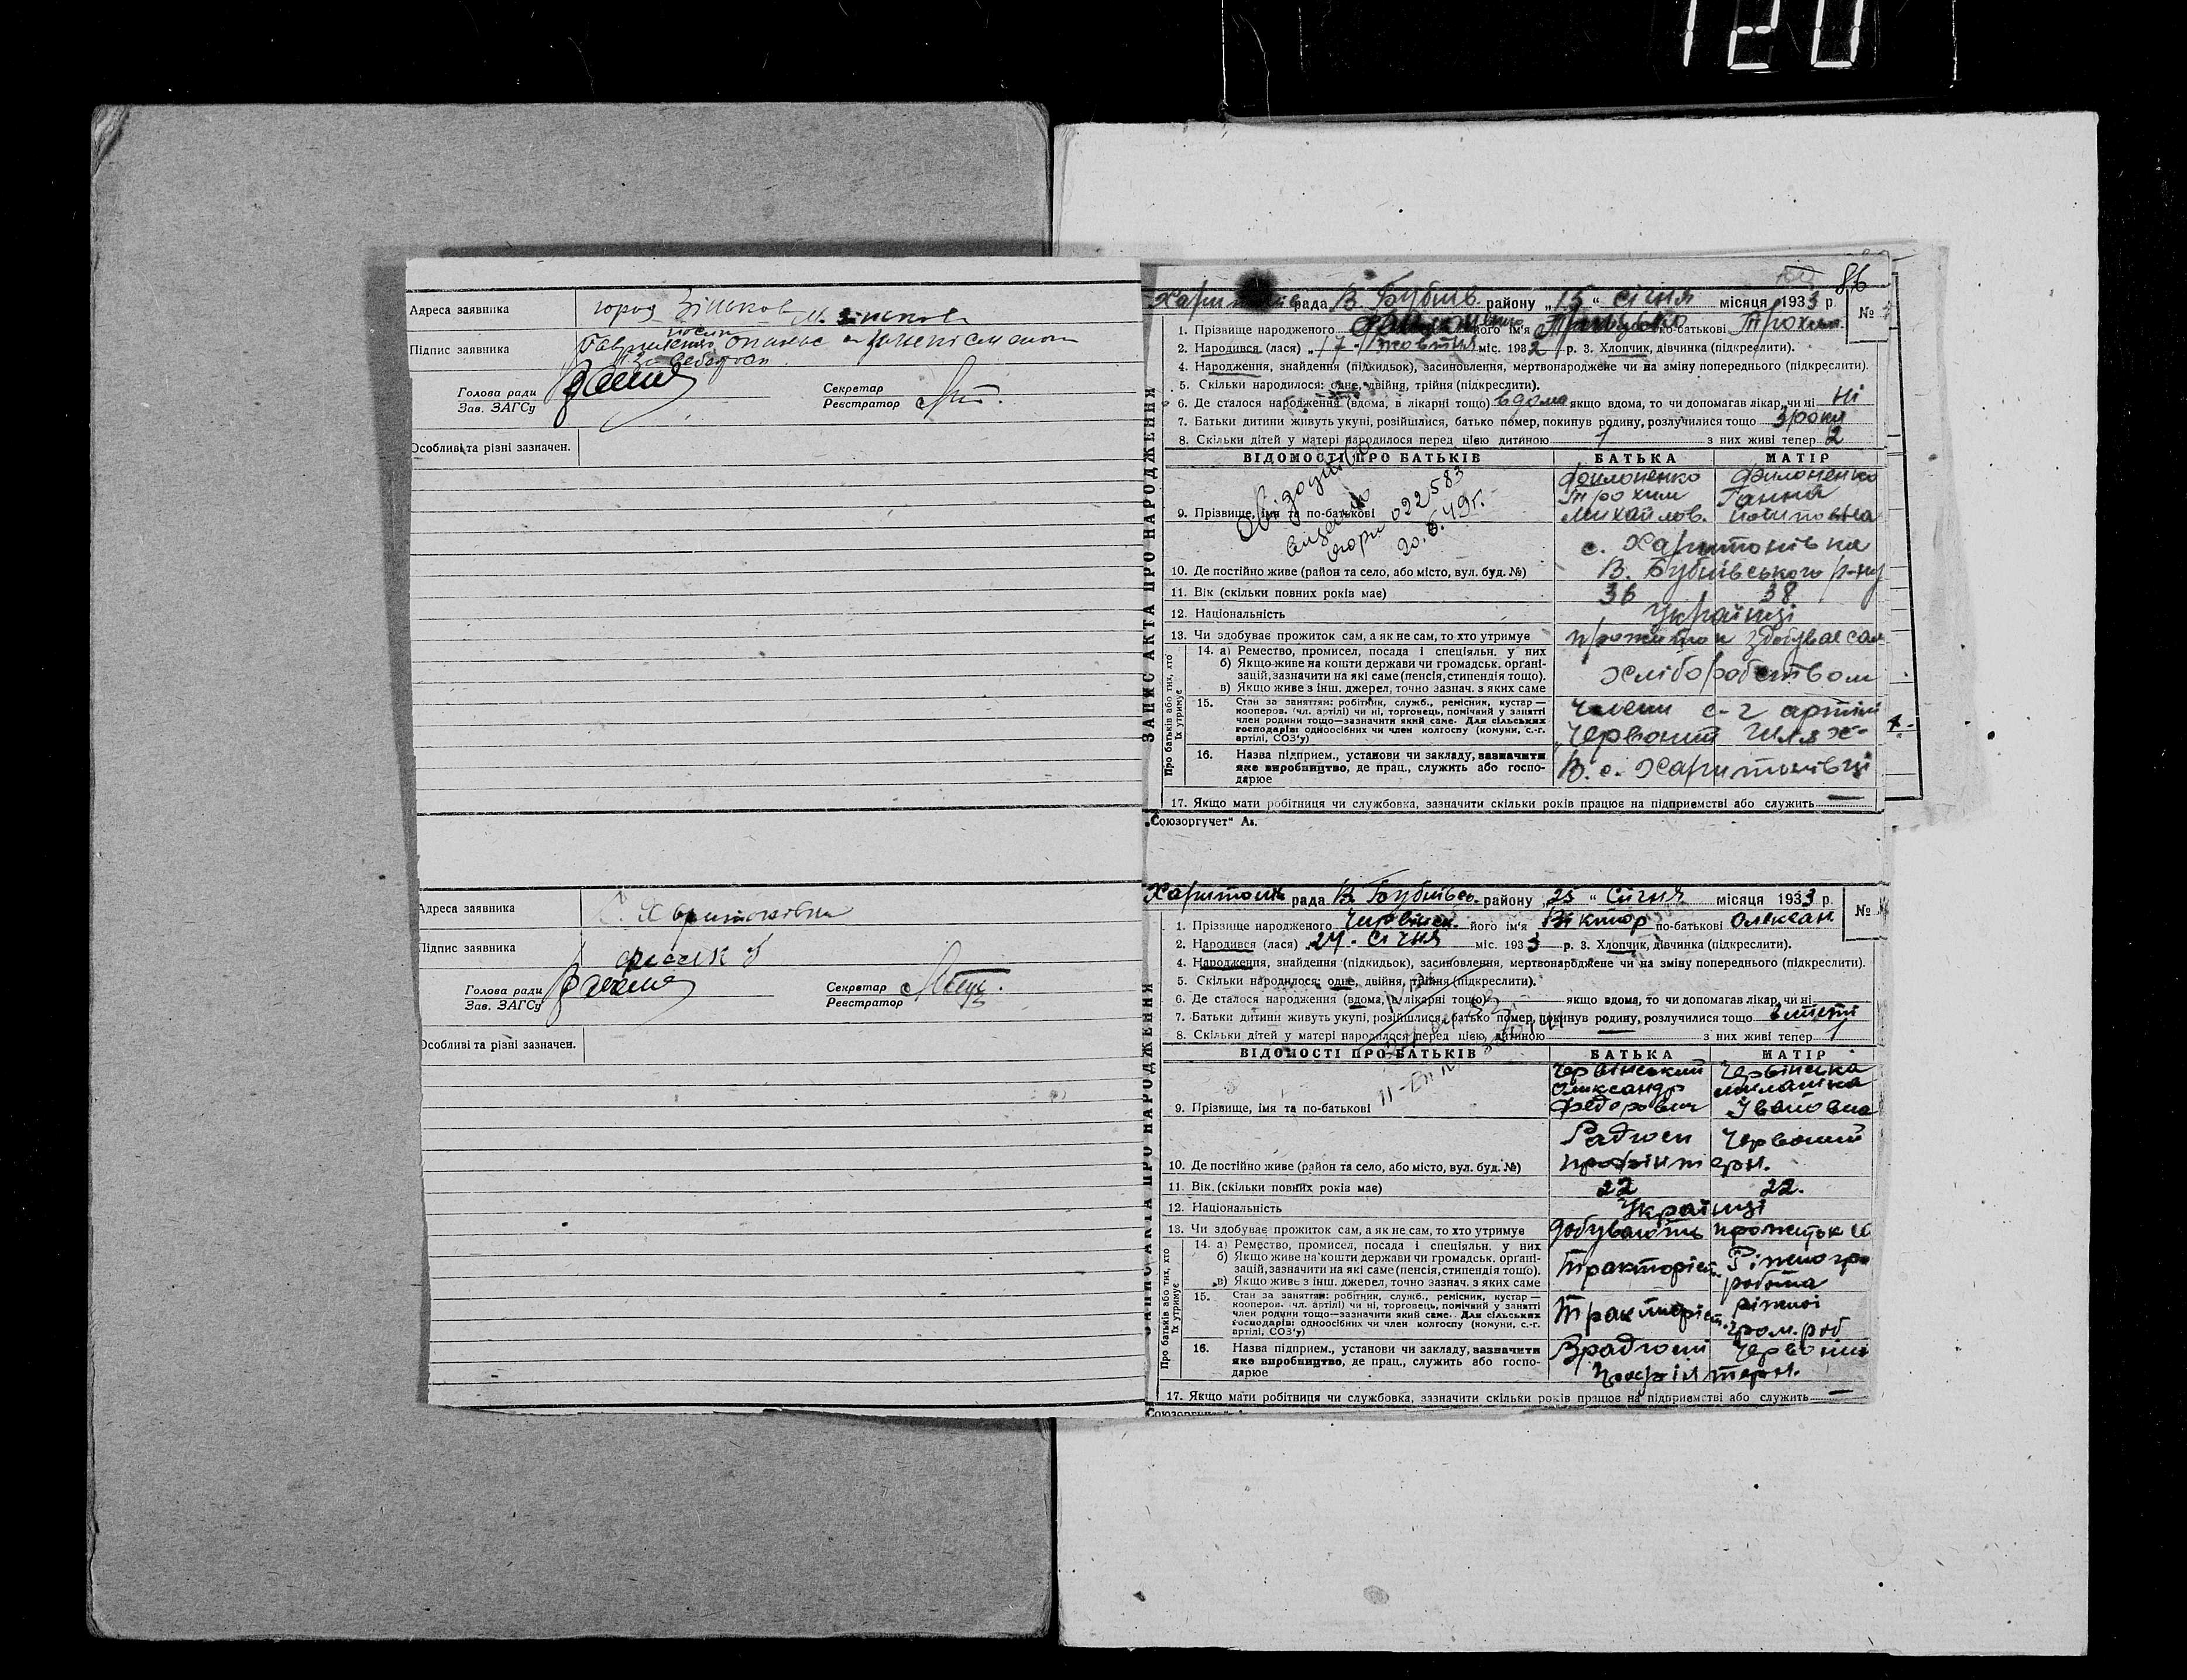 120
Адреса заявника
город Зіньков м. Зіньков
Підпис заявника
Опанас
Голова ради
Зав. ЗАГСу
Секретар
Реєстратор
Особливі та різні зазначен.
Адреса заявника
с. Харитонівка
Підпис заявника
Голова ради
Зав. ЗАГСу
Секретар
Реєстратор
Особливі та різні зазначен.
86
ЗАПИС АКТА ПРО НАРОДЖЕННЯ
рада В. Бубнів. району „15“ січня місяця 1933 р.
№
1. Прізвище народженого його ім'я по-батькові Трохим.
2. Народився (лася) „17. жовтня міс. 1932 р. 3. Хлопчик, дівчинка (підкреслити).
4. Народження, знайдення (підкидьок), засиновлення, мертвонароджене чи на зміну попереднього (підкреслити).
5. Скільки народилося: одне, двійня, трійня (підкреслити).
6. Де сталося народження (вдома, в лікарні тощо) вдома якщо вдома, то чи допомагав лікар, чи ні Ні
7. Батьки дитини живуть укупі, розійшлися, батько помер, покинув родину, розлучилися тощо 3 роки
8. Скільки дітей у матері народилося перед цією дитиною 1 з них живі тепер 2
ВІДОМОСТІ ПРО БАТЬКІВ БАТЬКА МАТІР
022583
20.6.49г.
9. Прізвище, імя та по-батькові
Филоненко Трохим Михайлов.
Филоненко Ганна
10. Де постійно живе (район та село, або місто, вул. буд. №)
с. Харитонівка
В. Бубнівського р-ну
11. Вік (скільки повних років має) 36 38
12. Національність Українці
13. Чи здобуває прожиток сам, а як не сам, то хто утримує прожиток здобуває сам
Про батьків або тих, хто їх утримує
14. а) Ремество, промисел, посада і спеціяльн. у них
б) Якщо живе на кошти держави чи громадськ. органі-
зацій, зазначити на які саме (пенсія, стипендія тощо).
в) Якщо живе з інш. джерел, точно зазнач. з яких саме
Хліборобством
15. Стан за заняттям: робітник, служб., ремісник, кустар —
кооперов. (чл. артілі) чи ні, торговець, помічний у занятті
член родини тощо—зазначити який саме. Для сільських
господарів: одноосібних чи член колгоспу (комуни, с.-г.
артілі, СОЗ'у)
Члени с-г артілі
„Червоний Шлях“
16. Назва підприєм., установи чи закладу, зазначити
яке виробництво, де прац., служить або госпо-
дарює
В. с. Харитонівці
17. Якщо мати робітниця чи службовка, зазначити скільки років працює на підприємстві або служить —
„Союзоргучет“ Аз.
ЗАПИС АКТА ПРО НАРОДЖЕННЯ
Харитонів рада В. Бубнівсь. району „25“ Січня місяця 1933 р.
№
1. Прізвище народженого Червінск. його ім'я Віктор по-батькові Олександ
2. Народився (лася) „24. Січня міс. 1933 р. 3. Хлопчик, дівчинка (підкреслити).
4. Народження, знайдення (підкидьок), засиновлення, мертвонароджене чи на зміну попереднього (підкреслити).
5. Скільки народилося: одне, двійня, трійня (підкреслити).
6. Де сталося народження (вдома, в лікарні тощо) якщо вдома, то чи допомагав лікар, чи ні
7. Батьки дитини живуть укупі, розійшлися, батько помер, покинув родину, розлучилися тощо
8. Скільки дітей у матері народилося перед цією дитиною — з них живі тепер 1
ВІДОМОСТІ ПРО БАТЬКІВ БАТЬКА МАТІР
9. Прізвище, імя та по-батькові
Червінський Олександр Федорович
Червінська Івановна
10. Де постійно живе (район та село, або місто, вул. буд. №)
Радгосп Червоний
Профінтерн.
11. Вік (скільки повних років має) 22 22.
12. Національність Українці
13. Чи здобуває прожиток сам, а як не сам, то хто утримує добувають прожиток
Про батьків або тих, хто їх утримує
14. а) Ремество, промисел, посада і спеціяльн. у них
б) Якщо живе на кошти держави чи громадськ. органі-
зацій, зазначити на які саме (пенсія, стипендія тощо).
в) Якщо живе з інш. джерел, точно зазнач. з яких саме
Тракторіст.
робота
15. Стан за заняттям: робітник, служб., ремісник, кустар —
кооперов. (чл. артілі) чи ні, торговець, помічний у занятті
член родини тощо—зазначити який саме. Для сільських
господарів: одноосібних чи член колгоспу (комуни, с.-г.
артілі, СОЗ'у)
Тракторіст.
різної гром. роб
16. Назва підприєм., установи чи закладу, зазначити
яке виробництво, де прац., служить або госпо-
дарює
В радгоспі Червоний
Профінтерн.
17. Якщо мати робітниця чи службовка, зазначити скільки років працює на підприємстві або служить —